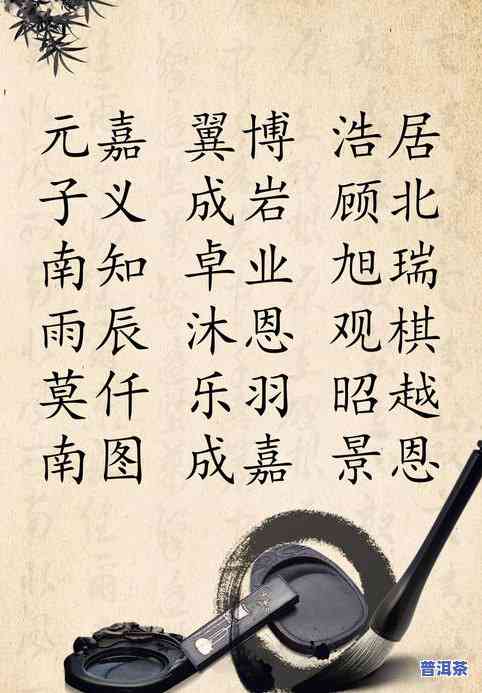 元嘉 翼博 浩居
子义 成岩 顾北
南知 卓业 旭瑞
雨辰 沐恩 观棋
莫仟 乐羽 昭越
南图 成嘉 景恩
普洱茶